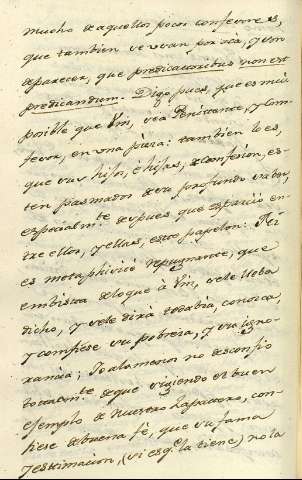 mucho de aquellos pocos confesores,
que tambien se usan por acá, y son
de parecer, que predicatoribus non est
predicandum. Digo pues, que es mui
posible que Vm, sea Penitente, y Con-
fesor, en una pieza: tambien lo es,
que sus hijos, è hijas, de confesion, es-
ten pasmados de su profundo saber,
especialm.te despues que esparciò en-
tre ellos, y ellas, este papelon: Ni
es metaphisicè repugnante, que
embista de loque à Vm, se le lleba
dicho, y se le dirà todabia, conosca,
y confiese su pobreza, y su igno-
rancia; Yo alomenos no desconfio
totalm.te de que siguiendo el buen
exemplo de Nuestro Zapatero, con-
fiese de buena fè, que su fama
y estimacion, (si es q.e la tiene) no la